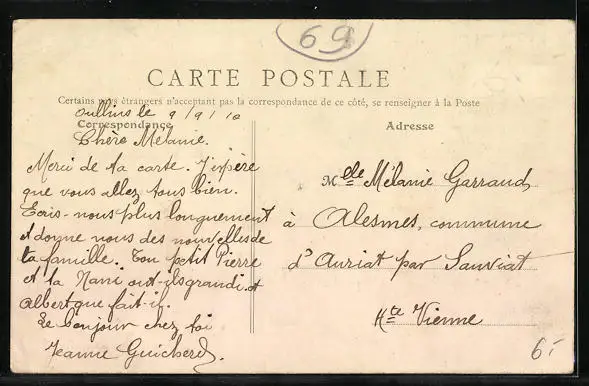 69
CARTE POSTALE
Certains pays étrangers n'acceptant pas la correspondance de ce côté, se renseigner à la Poste
Oullins le 9/9/10
Correspondance
Chère Mélanie.
Merci de ta carte. J'espère
que vous allez tous bien.
Ecris-nous plus longuement
et donne nous des nouvelles de
ta famille. Ton petit Pierre
et la Nani ont-ils grandi. et
Albert que fait-il.
Le bonjour chez toi
Jeanne Guicherd.
Adresse
Melle Mélanie Garraud
à Alesmes, commune
d'Auriat par Sauviat
Hte Vienne
6-